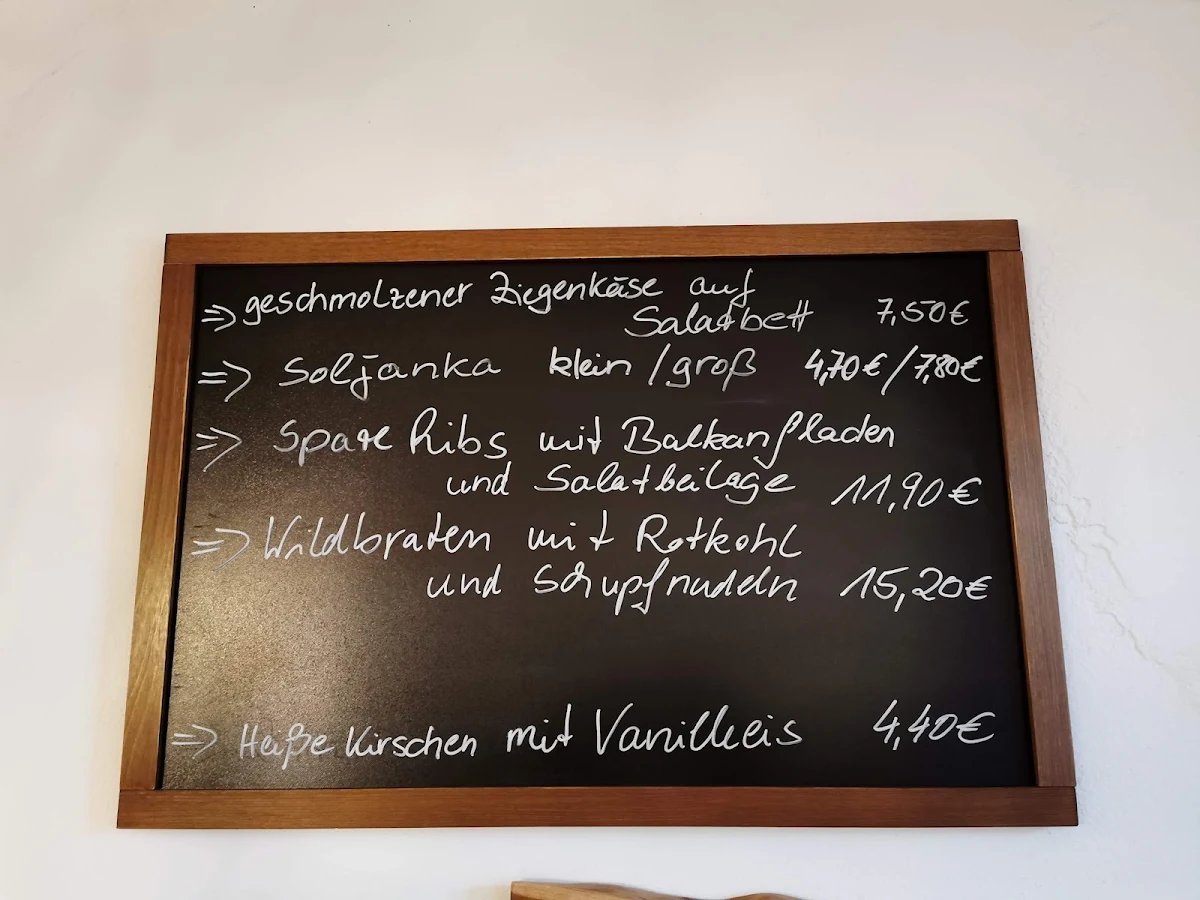 ⇒ geschmolzener Ziegenkäse auf
Salatbett 7,50€
⇒ Soljanka klein/groß 4,70€/7,80€
⇒ Spare Ribs mit Balkanfladen
und Salatbeilage 11,90€
⇒ Wildbraten mit Rotkohl
und Schupfnudeln 15,20€
⇒ Heiße Kirschen mit Vanilleeis 4,40€